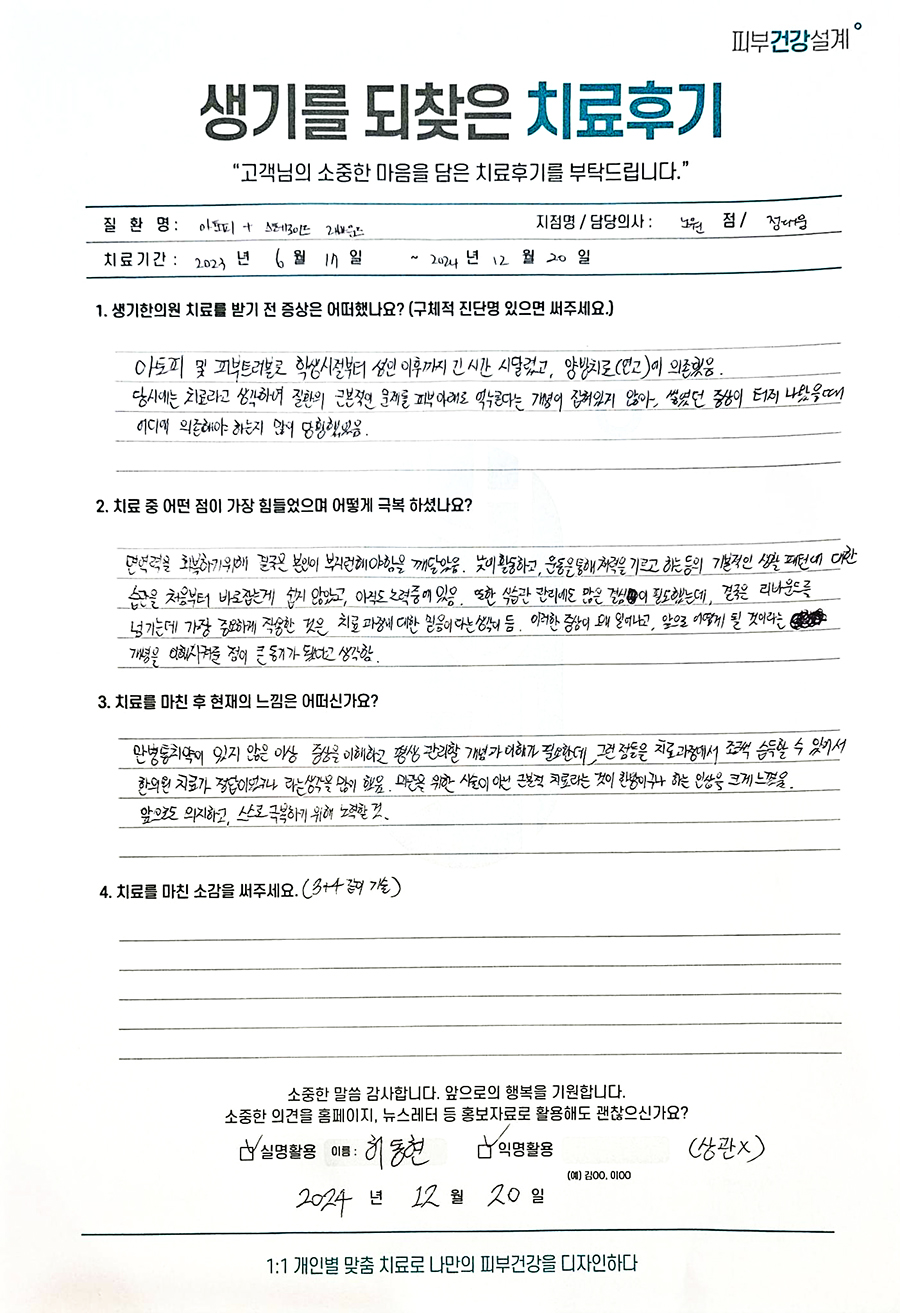 피부건강설계
생기를 되찾은 치료후기
“고객님의 소중한 마음을 담은 치료후기를 부탁드립니다.”
질 환 명 : 아토피 + 스테로이드 리바운드 지점명 / 담당의사 : 노원 점 /
치료기간 : 2023 년 6 월 17 일 ~ 2024 년 12 월 20 일
1. 생기한의원 치료를 받기 전 증상은 어떠했나요? (구체적 진단명 있으면 써주세요.)
아토피 및 피부트러블로 학생시절부터 성인 이후까지 긴 시간 시달렸고, 양방치료(연고)에 의존했음.
당시에는 치료라고 생각하며 질환의 근본적인 문제를 피부 아래로 억누른다는 개념이 잡혀있지 않아, 쌓였던 증상이 터져 나왔을때
어디에 의존해야 하는지 많이 당황했었음.
2. 치료 중 어떤 점이 가장 힘들었으며 어떻게 극복 하셨나요?
면역력을 회복하기위해 결국은 본인이 부지런해야함을 깨달았음. 많이 활동하고, 운동을 통해 체력을 기르고 하는 등의 기본적인 생활 패턴에 대한
습관을 처음부터 바로잡는게 쉽지 않았고, 아직도 노력중에 있음. 또한 식습관 관리에도 많은 결심이 필요했는데, 결국은 리바운드를
넘기는데 가장 중요하게 작용한 것은 치료 과정에 대한 믿음이라는 생각이 듬. 이러한 증상이 왜 일어나고, 앞으로 어떻게 될 것이라는
개념을 이해시켜준 점이 큰 동기가 됐다고 생각함.
3. 치료를 마친 후 현재의 느낌은 어떠신가요?
만병통치약이 있지 않은 이상 증상을 이해하고 평생 관리할 개념과 이해가 필요한데, 그런 점들을 치료과정에서 습득할 수 있어서
한의원 치료가 정답이었구나 라는 생각을 많이 했음. 위한 시술이 아닌 근본적 치료라는 것이 한방이구나 하는 인상을 크게 느꼈음.
앞으로도 의지하고, 스스로 극복하기 위해 노력할 것.
4. 치료를 마친 소감을 써주세요. (3+4 같이 기술)
소중한 말씀 감사합니다. 앞으로의 행복을 기원합니다.
소중한 의견을 홈페이지, 뉴스레터 등 홍보자료로 활용해도 괜찮으신가요?
실명활용 이름 : 허동현 익명활용 (상관X)
(예) 김OO, 이OO
2024 년 12 월 20 일
1:1 개인별 맞춤 치료로 나만의 피부건강을 디자인하다